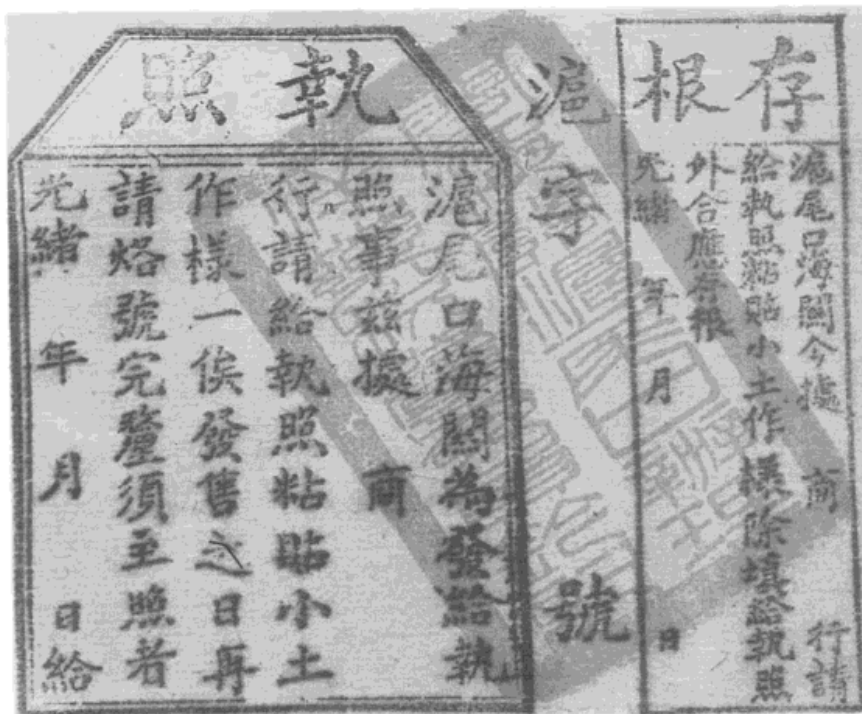 存根
滬尾口海關今據 商 行請
給執照黏貼小土作樣除填給執照
外合應存根
光緒 年 月 日
滬字 號
執照
滬尾口海關為發給執
照事茲據 商
行請給執照粘貼小土
作樣一俟發售之日再
請烙號完釐須至照者
光緒 年 月 日給